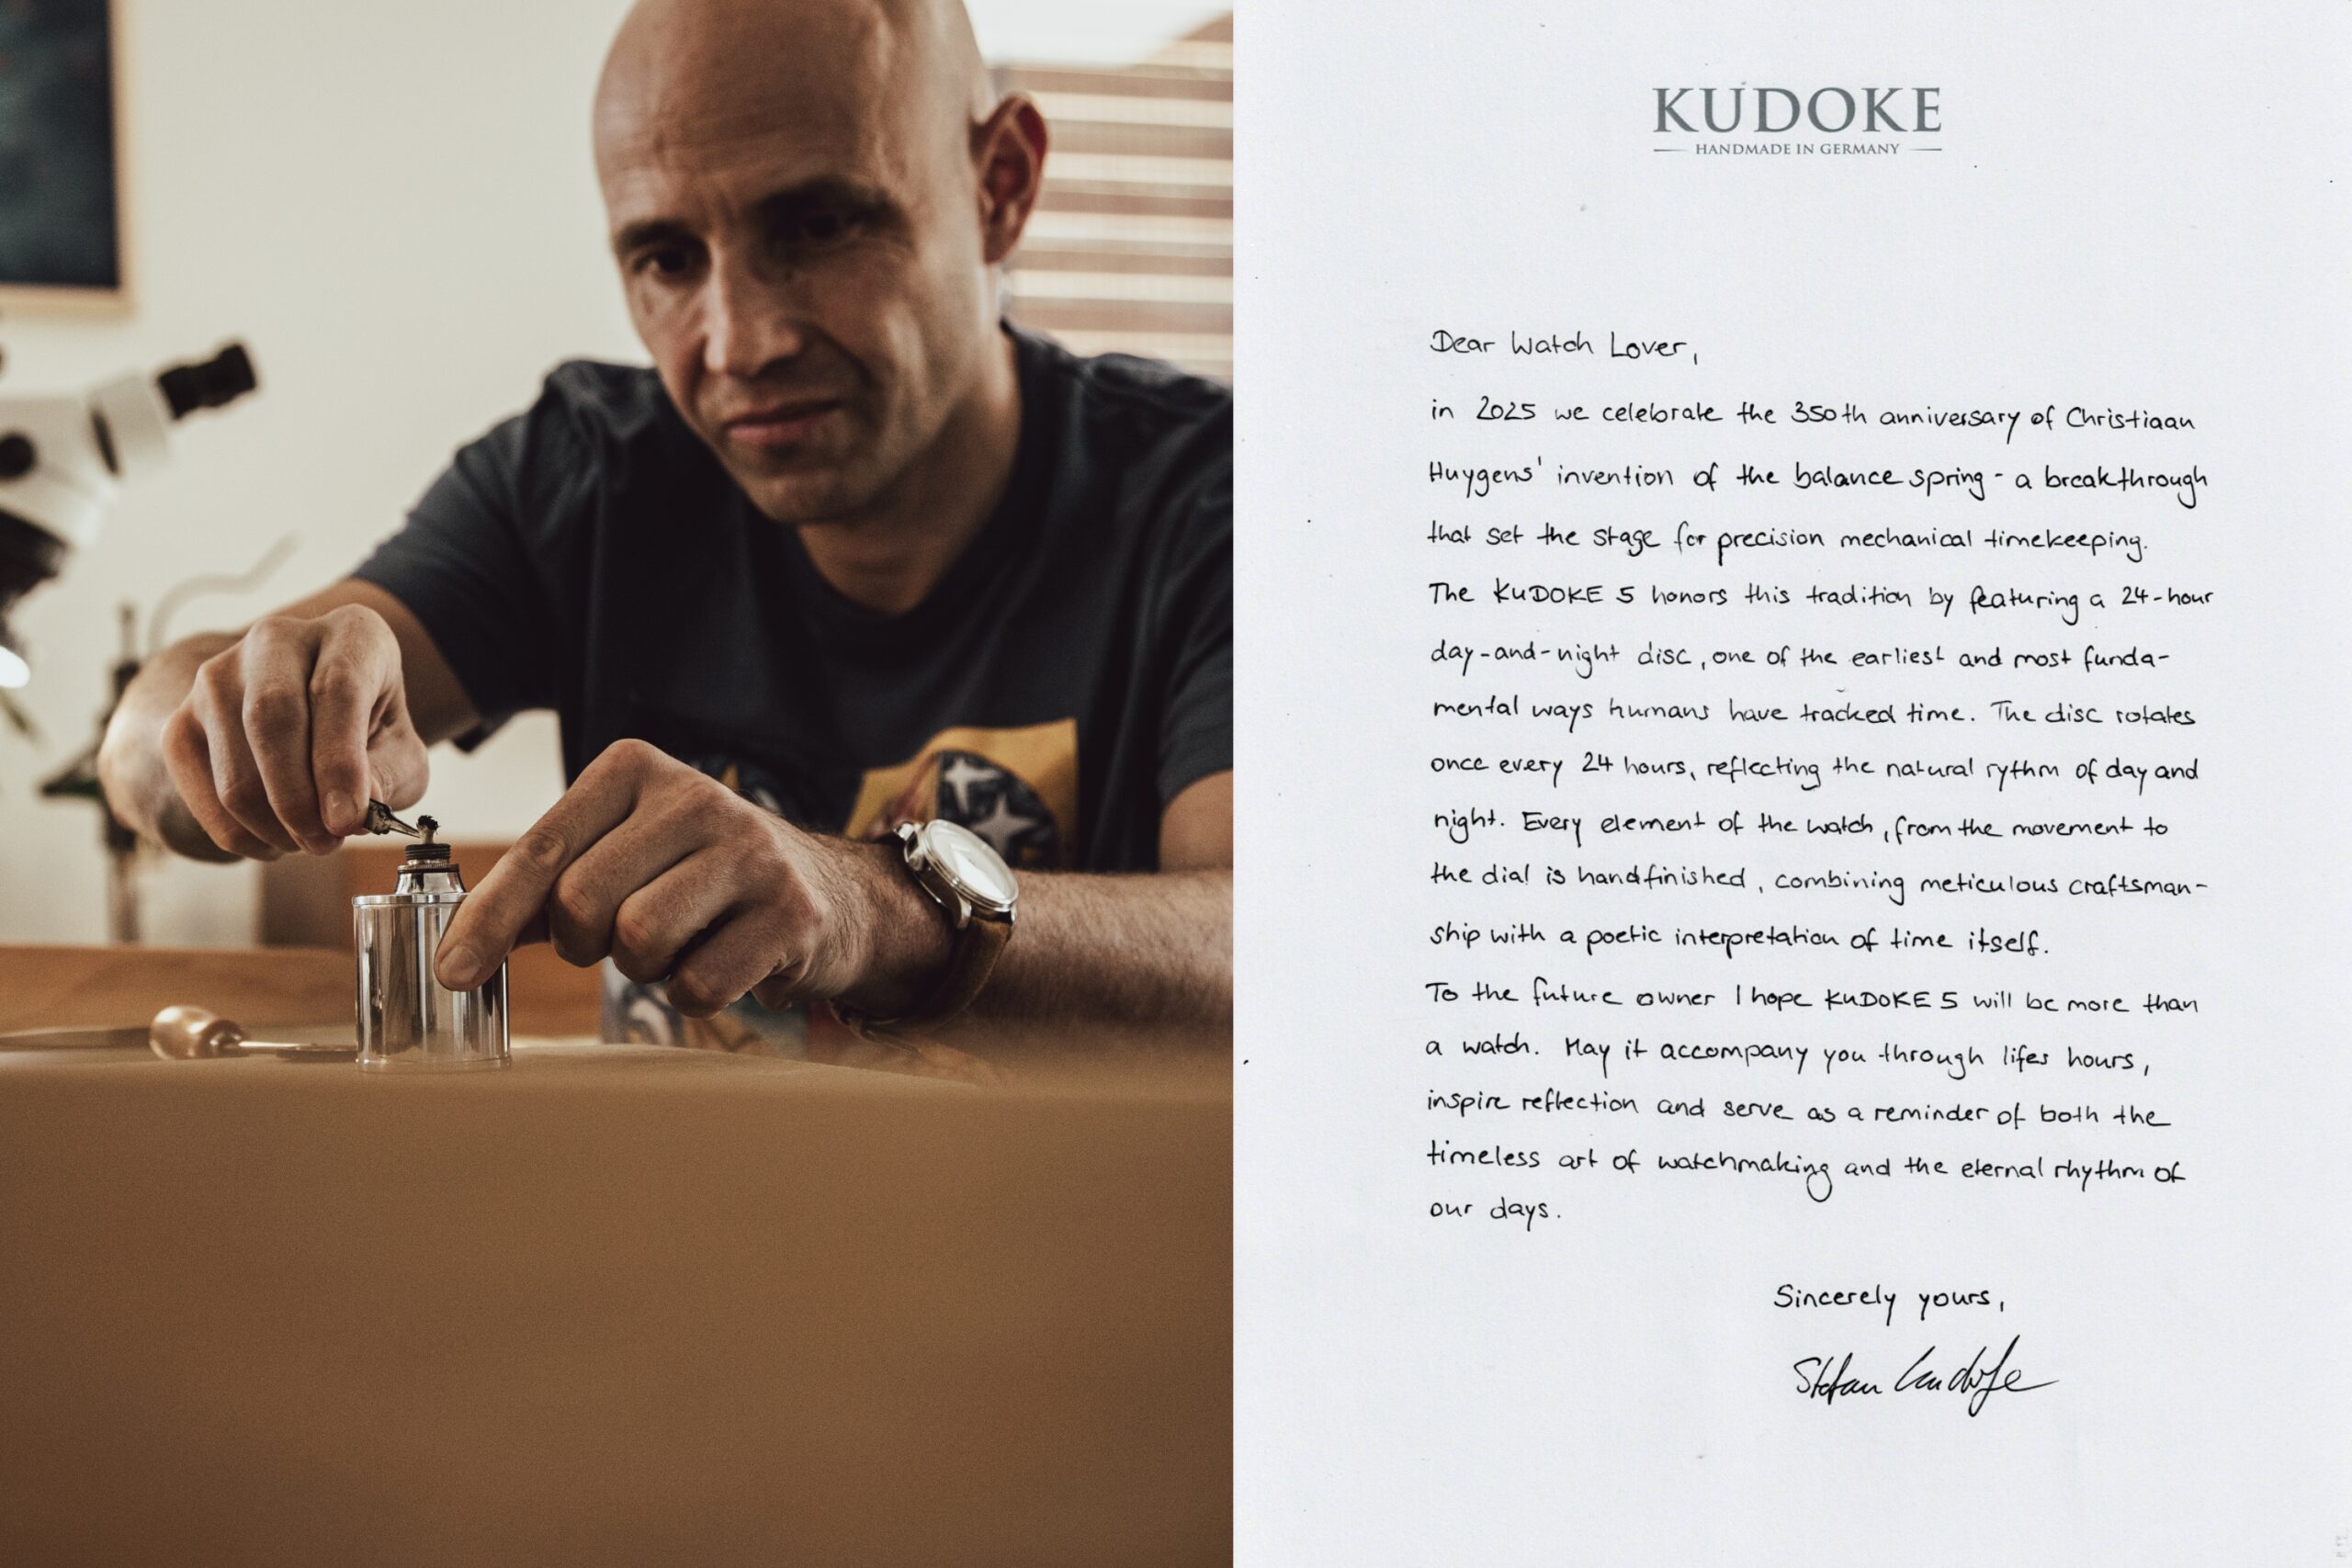 KUDOKE
HANDMADE IN GERMANY
Dear Watch Lover,
in 2025 we celebrate the 350th anniversary of Christiaan
Huygens' invention of the balance spring - a breakthrough
that set the stage for precision mechanical timekeeping.
The KUDOKE 5 honors this tradition by featuring a 24-hour
day-and-night disc, one of the earliest and most funda-
mental ways humans have tracked time. The disc rotates
once every 24 hours, reflecting the natural rythm of day and
night. Every element of the watch, from the movement to
the dial is handfinished, combining meticulous craftsman-
ship with a poetic interpretation of time itself.
To the future owner I hope KUDOKE 5 will be more than
a watch. May it accompany you through lifes hours,
inspire reflection and serve as a reminder of both the
timeless art of watchmaking and the eternal rhythm of
our days.
Sincerely yours,
Stefan Kudoke